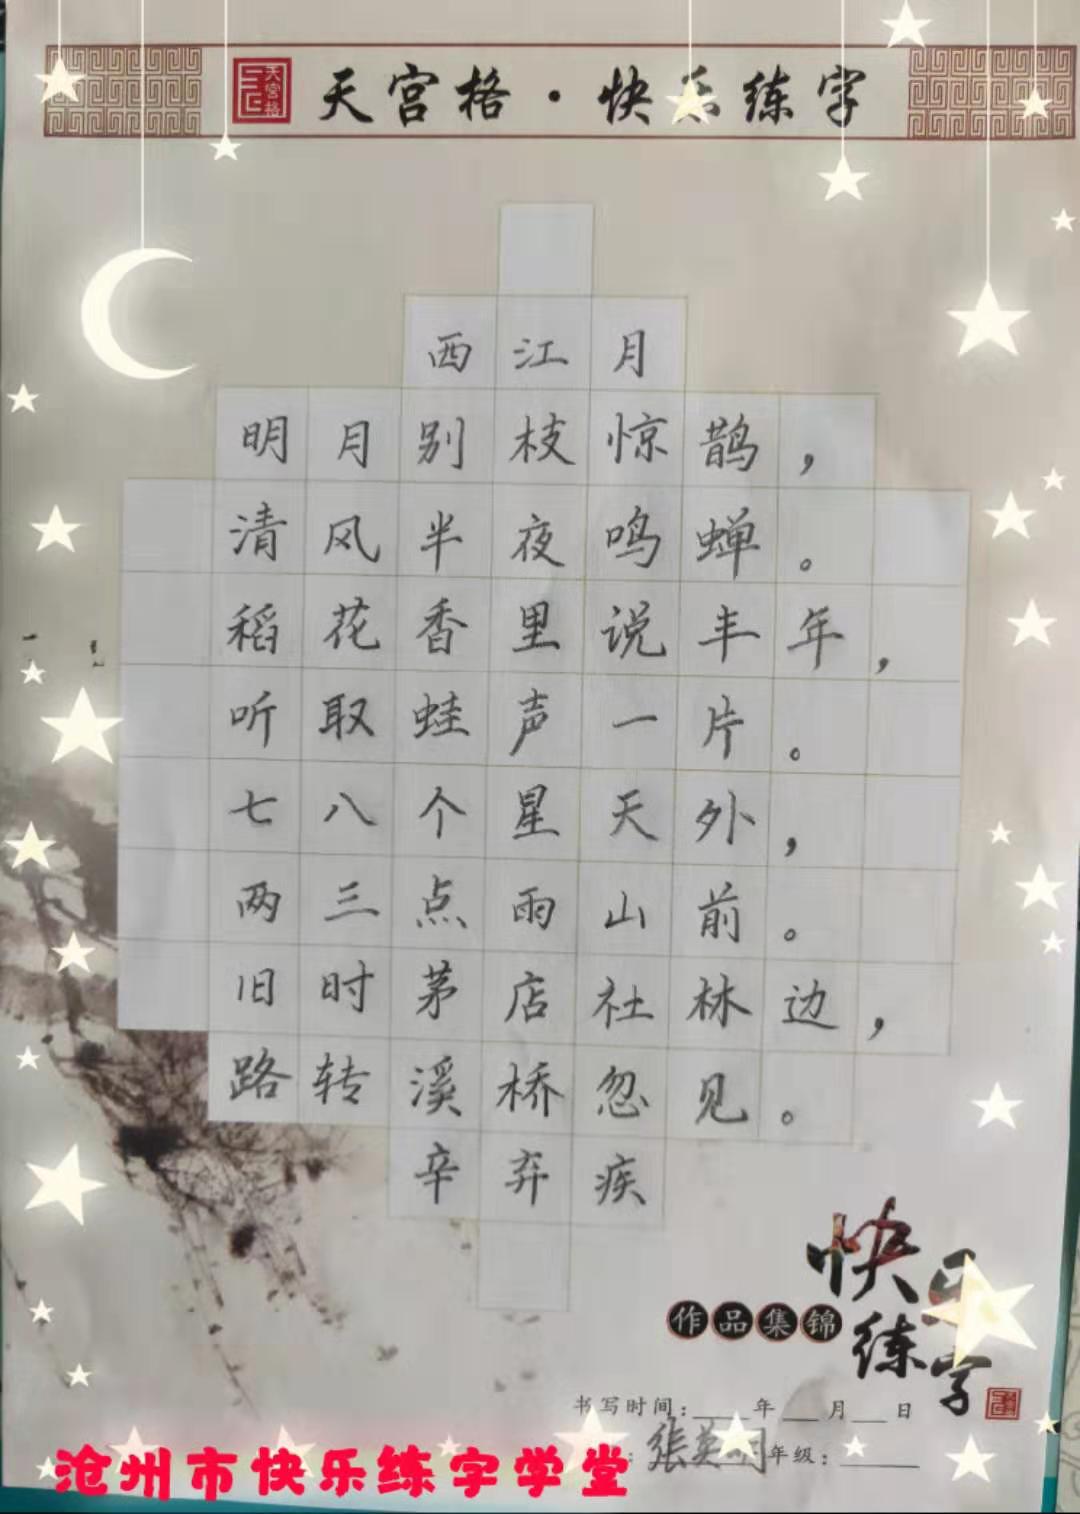 天宫格
天宫格·快乐练字
西江月
明月别枝惊鹊，
清风半夜鸣蝉。
稻花香里说丰年，
听取蛙声一片。
七八个星天外，
两三点雨山前。
旧时茅店社林边，
路转溪桥忽见。
辛弃疾
快乐
练字
作品集锦
书写时间：____年___月___日
年级：
沧州市快乐练字学堂